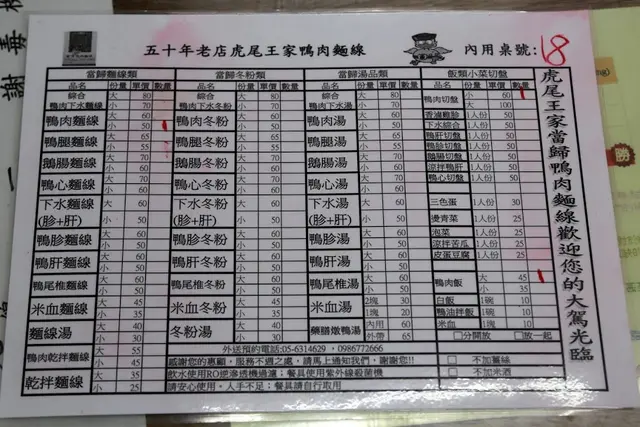 五十年老店虎尾王家鴨肉麵線 內用桌號: 18
當歸麵線類 當歸冬粉類 當歸湯品類 飯類小菜切盤
品名 份量 單價 數量 品名 份量 單價 數量 品名 份量 單價 數量 品名 份量 單價 數量
綜合 大 80 綜合 大 80 綜合 大 80 鴨肉切盤 小 60
鴨肉下水麵線 小 70 鴨肉下水冬粉 小 70 鴨肉下水湯 小 70 大 100
鴨肉麵線 大 60 鴨肉冬粉 大 60 鴨肉湯 大 60 香滷雞胗 1人份 30
小 50 小 50 小 50 下水綜合 1人份 50
鴨腿麵線 大 65 鴨腿冬粉 大 65 鴨腿湯 大 65 鴨肝切盤 1人份 50
小 55 小 55 小 55 鴨胗切盤 1人份 50
鵝腸麵線 大 70 鵝腸冬粉 大 70 鵝腸湯 大 70 鵝腸切盤 1人份 50
小 60 小 60 小 60 涼拌鴨肝 1人份
鴨心麵線 大 60 鴨心冬粉 大 60 鴨心湯 大 60 鴨心切盤 1人份 50
小 50 小 50 小 50
下水麵線 大 下水冬粉 大 下水湯 大 三色蛋 1人份 30
(胗+肝) 小 50 (胗+肝) 小 50 (胗+肝) 小 50 燙青菜 1人份 25
鴨胗麵線 大 60 鴨胗冬粉 大 60 鴨胗湯 大 60 泡菜 1人份
小 50 小 50 小 50 涼拌苦瓜 1人份
鴨肝麵線 大 60 鴨肝冬粉 大 60 鴨肝湯 大 60 皮蛋豆腐 1人份 30
小 50 小 50 小 50
鴨尾椎麵線 大 60 鴨尾椎冬粉 大 60 鴨尾椎湯 大 60 鴨肉飯 大 45
小 50 小 50 小 50 小 35
米血麵線 大 45 米血冬粉 大 45 米血湯 2塊 30 白飯 1碗 10
小 35 小 35 1塊 20 鴨油拌飯 1碗 10
麵線湯 大 40 冬粉湯 大 40 藥膳燉鴨湯 內用 60 米血 1塊 10
小 30 小 30 外帶 65 □分開放 □放一起
鴨肉乾拌麵線 大 55 外送預約電話:05-6314629,0986772666
小 45 感謝您的惠顧,服務不週之處,請馬上通知我們,謝謝您!! □ 不加薑絲
乾拌麵線 大 35 飲水使用RO逆滲透機過濾;餐具使用紫外線殺菌機 □ 不加米酒
小 25 請安心使用,人手不足;餐具請自行取用
虎尾王家當歸鴨肉麵線歡迎您的大駕光臨
謝
毒
勝